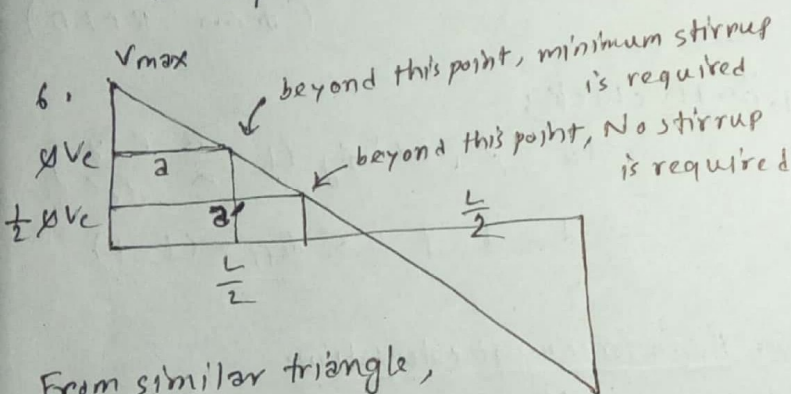 Vmax
6.
beyond this point, minimum stirrup
is required
øVc
a
beyond this point, No stirrup
is required
½ øVc
a'
L/2
L/2
From similar triangle,